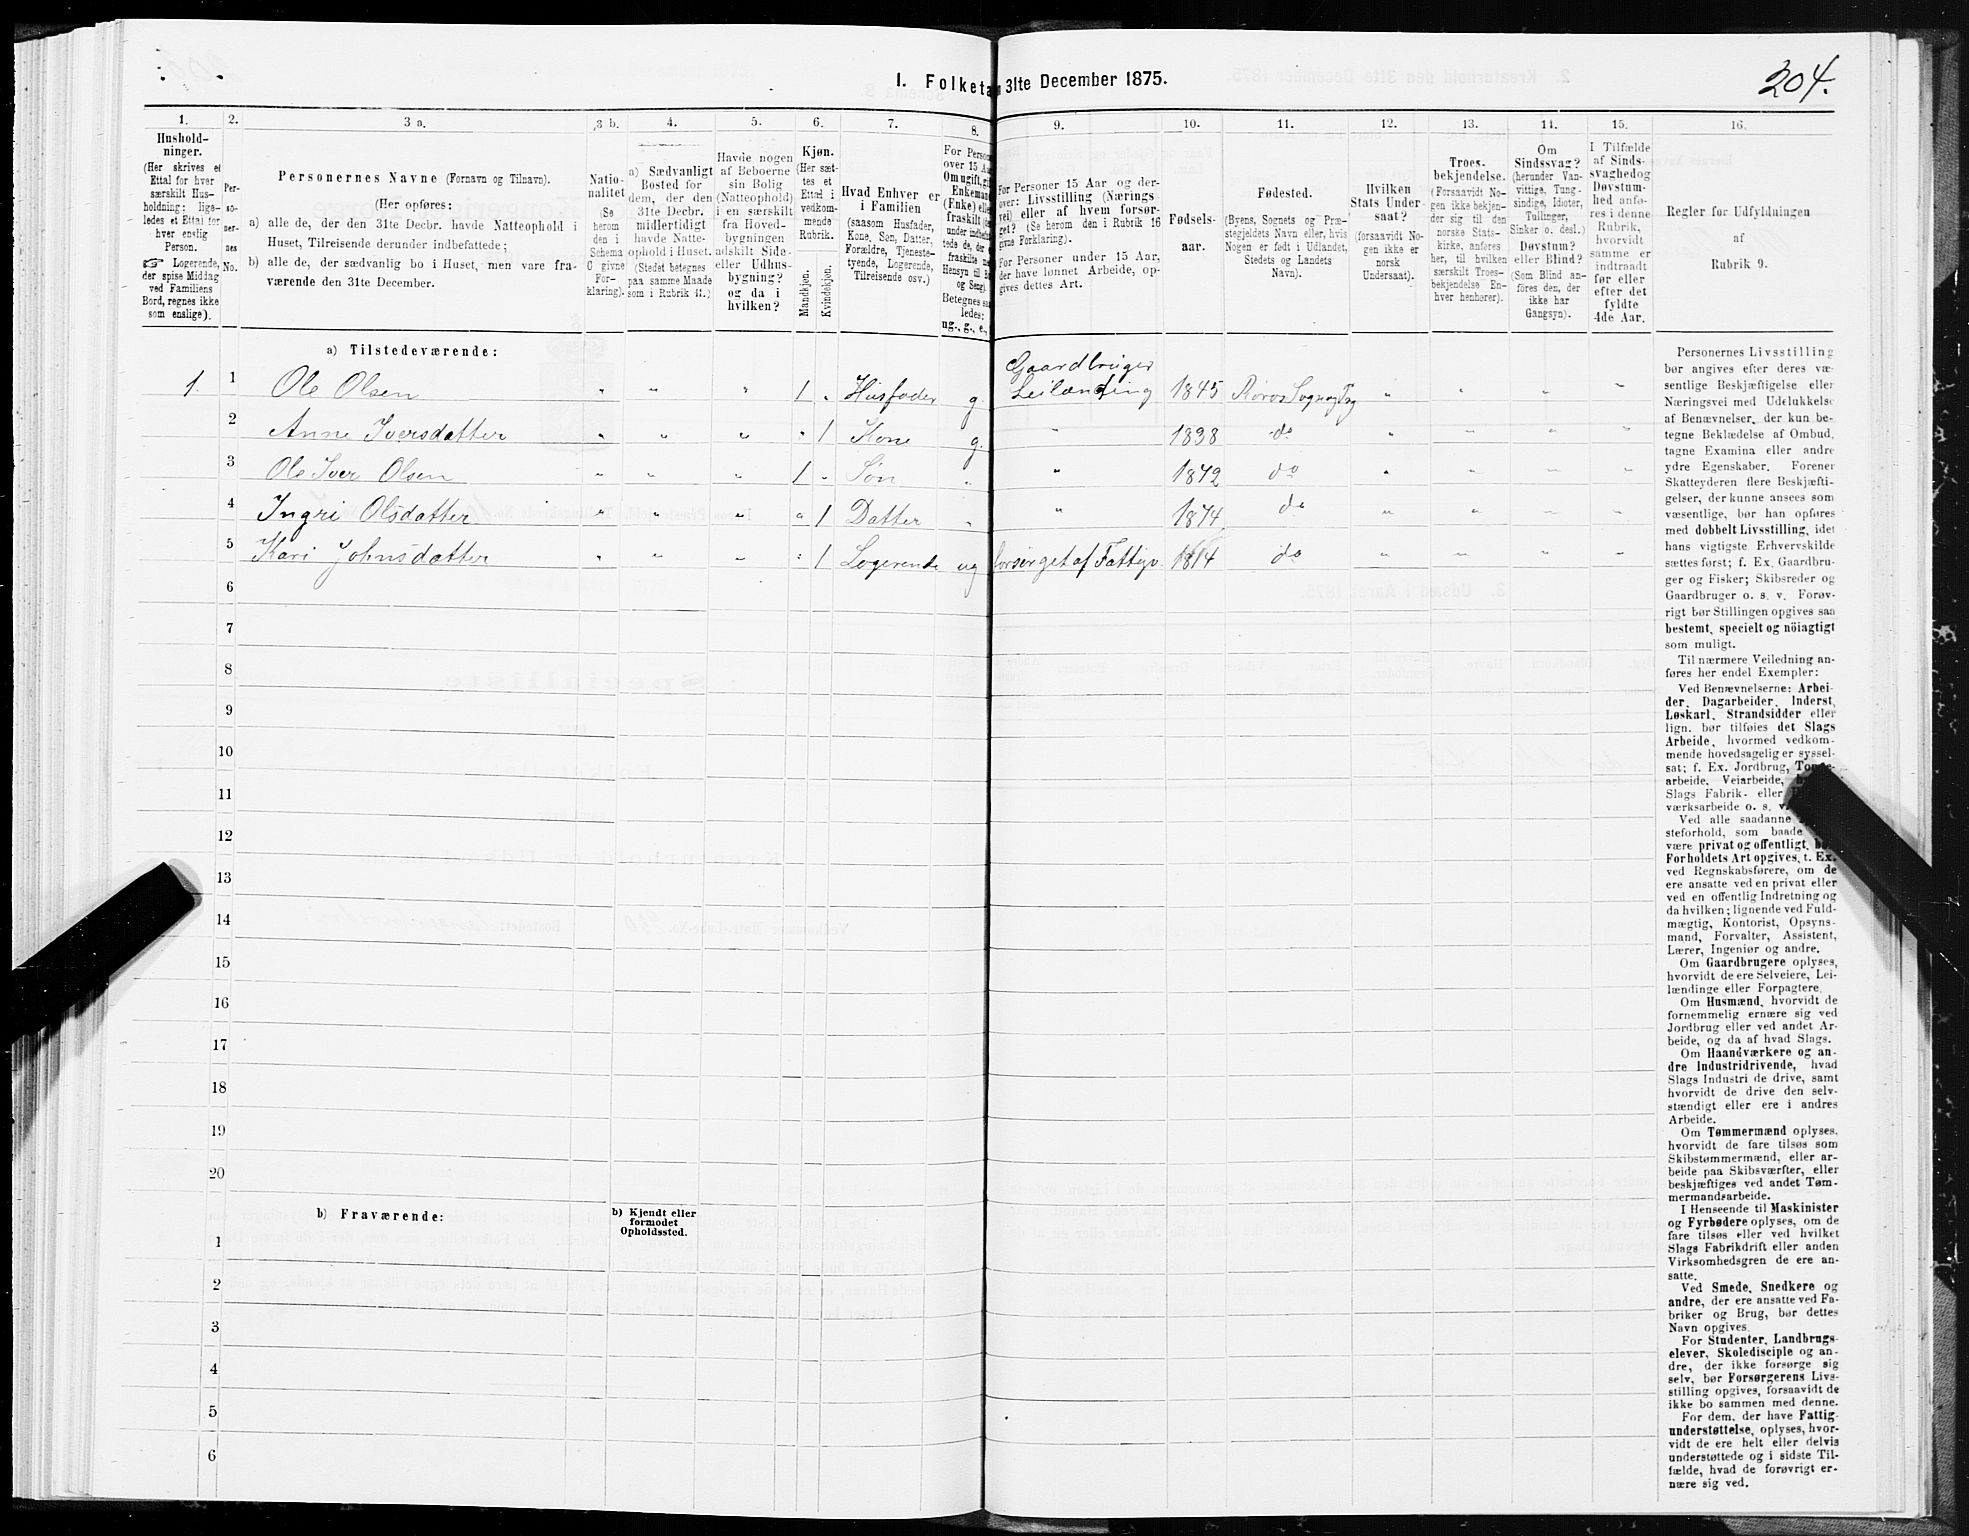 204.
I. Folketæ
31te December 1875.
1.
2.
3 a.
3 b.
4.
5.
6.
7.
8.
9.
10.
11.
12.
13.
14.
15.
16.
Hushold-
ninger.
(Her skrives et
Ettal for hver
særskilt Hus-
holdning: lige-
ledes et Ettal for
hver enslig
Person.
Logerende,
der spise Middag
ved Familiens
Bord, regnes ikke
som enslige).
Per-
so-
ner-
nes
No.
Personernes Navne (Fornavn og Tilnavn).
(Her opføres:
a) alle de, der den 31te Decbr. havde Natteophold i
Huset, Tilreisende derunder indbefattede;
b) alle de, der sædvanlig bo i Huset, men vare fra-
værende den 31te December.
Natio-
nalitet
(Se
herom
den i
Schema
O givne
For-
klaring).
a) Sædvanligt
Bosted for
dem, der den
31te Decbr.
midlertidigt
havde Natte-
ophold i Huset.
(Stedet betegnes
paa samme Maade
som i Rubrik 11.)
Havde nogen
af Beboerne
sin Bolig
(Natteophold)
i en særskilt
fra Hoved-
bygningen
adskilt Side-
eller Udhus-
bygning?
og da i
hvilken?
Kjøn.
(Her sæt-
tes et
Ettal i
vedkom-
mende
Rubrik.
Mandkjøn.
Kvindekjøn.
Hvad Enhver er
i Familien
(saasom Husfader,
Kone, Søn, Datter,
Forældre, Tjeneste-
tyende, Logerende,
Tilreisende osv.)
For Person
over 15 Aar
Om ugift, gif
Enkemand
(Enke) elle
fraskilt
Betegnes saa
ledes:
ug., g., e.,
For Personer 15 Aar og der-
over: Livsstilling (Nærings-
vei) eller af hvem forsør-
get? (Se herom den i Rubrik 16
givne Forklaring).
For Personer under 15 Aar,
der have lønnet Arbeide, op-
gives dettes Art.
Fødsels-
aar.
Fødested.
(Byens, Sognets og Præ-
stegjeldets Navn eller, hvis
Nogen er født i Udlandet,
Stedets og Landets
Navn).
Hvilken
Stats Under-
saat?
(forsaavidt No-
gen ikke er
norsk
Undersaat).
Troes-
bekjendelse.
(Forsaavidt No-
gen ikke bekjen-
der sig til den
norske Stats-
kirke, anføres
her, til hvilken
særskilt Troes-
bekjendelse En-
hver henhører).
Om
Sindssvag?
(herunder Van-
vittige, Tung-
sindige, Idioter,
Tullinger,
Sinker o. desl.)
Døvstum?
eller Blind?
(Som Blind an-
føres den, der
ikke har
Gangsyn).
I Tilfælde
af Sinds-
svaghed og
Døvstum-
hed anfø-
res i denne
Rubrik,
hvorvidt
samme er
indtraadt
før eller
efter det
fyldte
4de Aar.
Regler for Udfyldningen
af
Rubrik 9.
a) Tilstedeværende:
1. 1 Ole Olsen " " " 1 " Husfader g. Gaardbruger Leilænding 1845 Røros Sogn og Prg " " " "
2 Anne Iversdatter " " " " 1 Kone g. " 1838 do " " " "
3 Ole Iver Olsen " " " 1 " Søn " " 1872 do " " " "
4 Ingri Olsdatter " " " " 1 Datter " " 1874 do " " " "
5 Kari Johnsdatter " " " " 1 Logerende ug forsørget af Fattigv. 1814 do " " " "
6
7
8
9
10
11
12
13
14
15
16
17
18
19
20
b) Fraværende:
b) Kjendt eller
formodet
Opholdssted.
1
2
3
4
5
6
Personernes Livsstilling
bør angives efter deres væ-
sentlige Beskjæftigelse eller
Næringsvei med Udelukkelse
af Benævnelser, der kun be-
tegne Beklædelse af Ombud,
tagne Examina eller andre
ydre Egenskaber. Forener
Skatteyderen flere Beskjæfti-
gelser, der kunne ansees som
væsentlige, bør han opføres
med dobbelt Livsstilling, idet
hans vigtigste Erhvervskilde
sættes først; f. Ex. Gaardbru-
ger og Fisker; Skibsreder og
Gaardbruger o. s. v. Forøv-
rigt bør Stillingen opgives saa
bestemt, specielt og nöiagtigt
som muligt.
Til nærmere Veiledning an-
føres her endel Exempler:
Ved Benævnelserne: Arbei-
der, Dagarbeider, Inderst,
Løskarl, Strandsidder eller
lign. bør tilføies det Slags
Arbeide, hvormed vedkom-
mende hovedsagelig er syssel-
sat; f. Ex. Jordbrug,
arbeide, Veiarbeide,
Slags Fabrik- eller
værksarbeide o. s. v.
Ved alle saadanne
steforhold, som baade
være privat og offentligt,
Forholdets Art opgives, t. Ex.
ved Regnskabsførere, om de
ere ansatte ved en privat eller
ved en offentlig Indretning og
da hvilken; lignende ved Fuld-
mægtig, Kontorist, Opsyns-
mand, Forvalter, Assistent,
Lærer, Ingeniør og andre.
Om Gaardbrugere oplyses,
hvorvidt de ere Selveiere, Lei-
lændinge eller Forpagtere.
Om Husmænd, hvorvidt de
fornemmelig ernære sig ved
Jordbrug eller ved andet Ar-
beide, og da af hvad Slags.
Om Haandværkere og an-
dre Industridrivende, hvad
Slags Industri de drive, samt
hvorvidt de drive den selv-
stændigt eller ere i andres
Arbeide.
Om Tømmermænd oplyses,
hvorvidt de fare tilsøs som
Skibstømmermænd, eller ar-
beide paa Skibsværfter, eller
beskjæftiges ved andet Tøm-
mermandsarbeide.
I Henseende til Maskinister
og Fyrbødere oplyses, om de
fare tilsøs eller ved hvilket
Slags Fabrikdrift eller anden
Virksomhedsgren de ere an-
satte.
Ved Smede, Snedkere og
andre, der ere ansatte ved Fa-
briker og Brug, bør dettes
Navn opgives.
For Studenter, Landbrugs-
elever, Skoledisciple og an-
dre, der ikke forsørge sig
selv, bør Forsørgerens Livs-
stilling opgives, forsaavidt de
ikke bo sammen med denne.
For dem, der have Fattig-
understøttelse, oplyses, hvor-
vidt de ere helt eller delvis
understøttede og i sidste Til-
fælde, hvad de forøvrigt er-
nære sig ved.